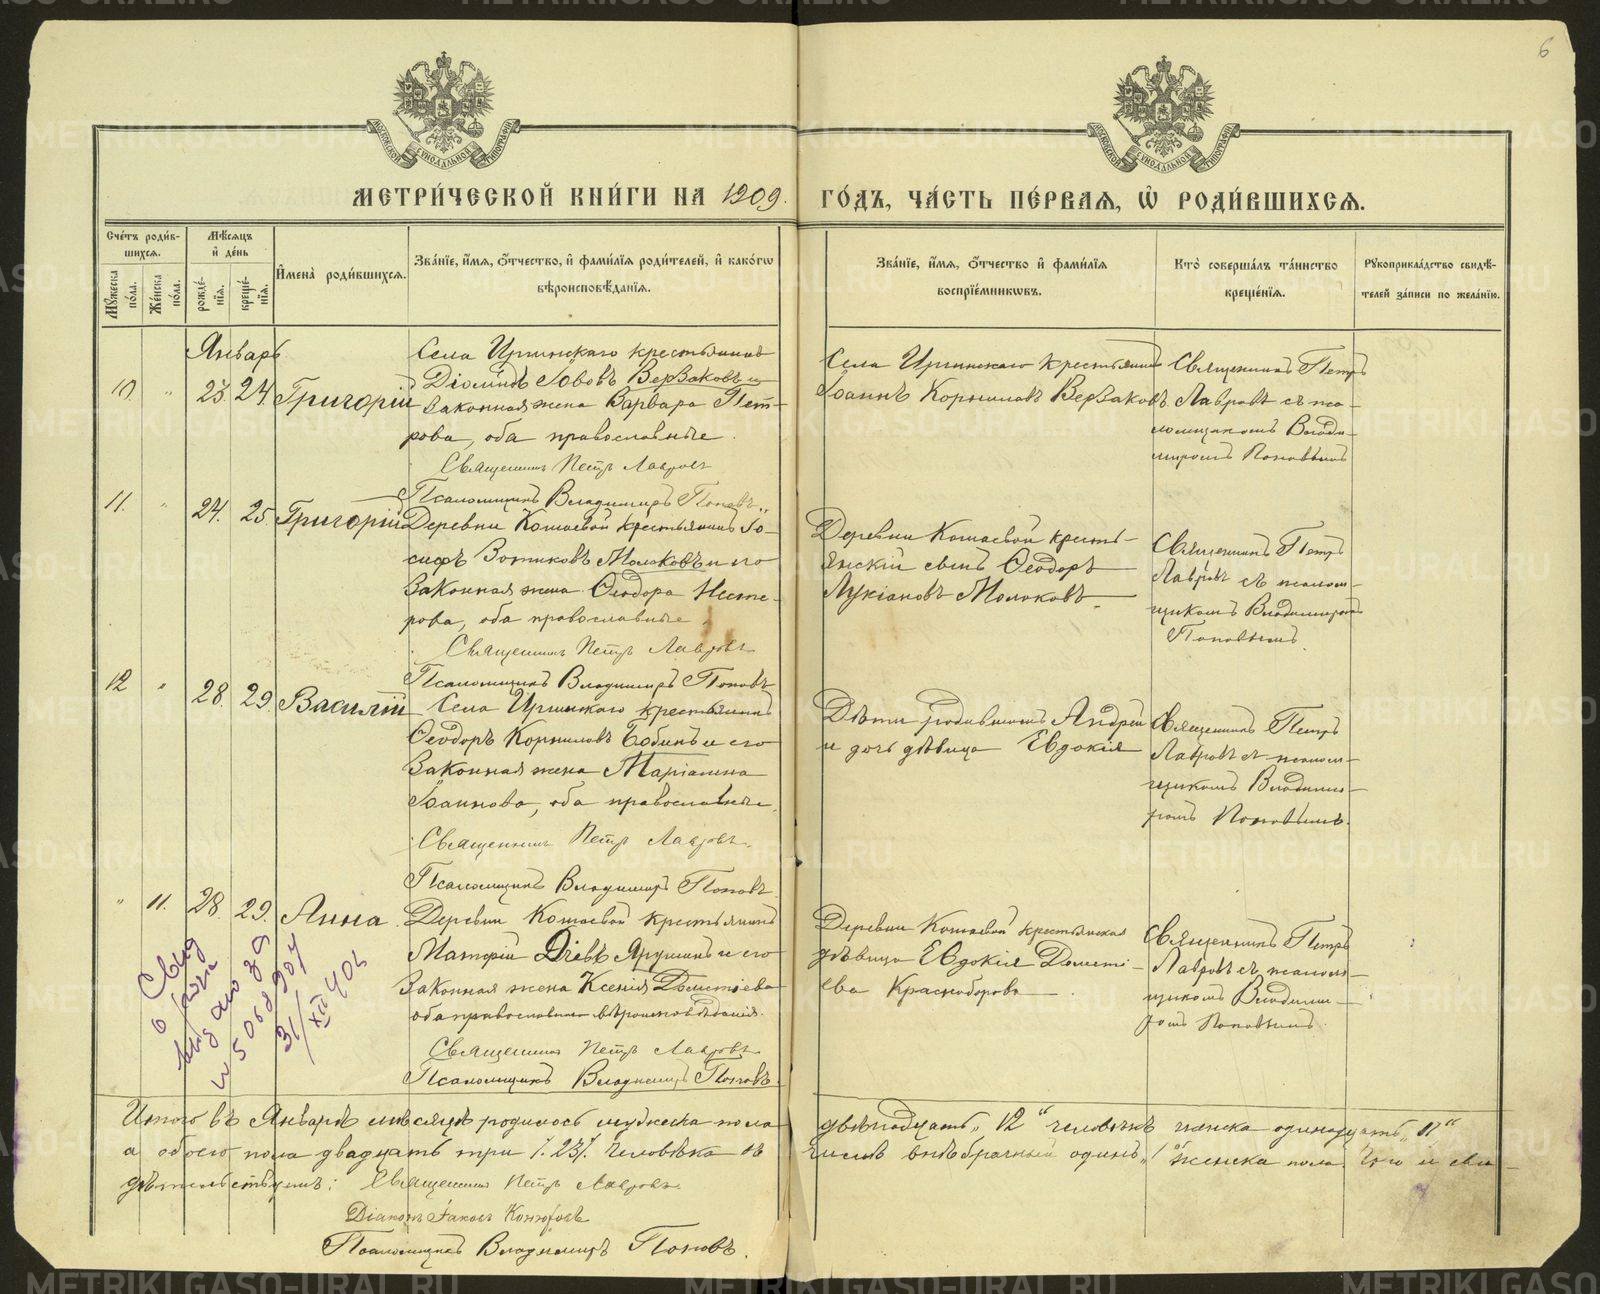 6
МОСКОВСКОЙ СУНОДАЛЬНОЙ ТИПОГРАФІИ
МОСКОВСКОЙ СУНОДАЛЬНОЙ ТИПОГРАФІИ
МЕТРИ́ЧЕСКОЙ КНИ́ГИ НА 1909. ГО́ДЪ, ЧА́СТЬ ПЕ́РВАЯ, Ѡ҆ РОДИ́ВШИХСЯ.
Сче́тъ роди́в-
шихся.
Мꙋ́жеска
по́ла.
Же́нска
по́ла.
Мѣ́сяцъ
и҆ де́нь
рожде́-
нїя.
креще́-
нїя.
И҆мена̀ роди́вшихся.
Зва́нїе, и҆́мя, ѻ҆́тчество, и҆ фами́лїя роди́телей, и҆ како́гѡ
вѣроисповѣ́данїя.
Зва́нїе, и҆́мя, ѻ҆́тчество и҆ фами́лїя
воспрїе́мникѡвъ.
Кто̀ соверша́лъ та́инство
креще́нїя.
Рꙋкоприкла́дство свидѣ́-
телей за́писи по жела́нїю.
Январь
10 " 23. 24. Григорій
Села Иргинскаго крестьянинъ
Діомидъ Іововъ Верзаковъ и
законная жена Варвара Пет-
рова, оба православные.
Священникъ Петръ Лавровъ
Псаломщикъ Владимиръ Поповъ
Села Иргинскаго крестьянинъ
Іоаннъ Корниловъ Верзаковъ.
Священникъ Петръ
Лавровъ съ пса-
ломщикомъ Влади-
миромъ Поповымъ
11. " 24. 25. Григорій
Деревни Кошаевой крестьянинъ Іо-
сифъ Зотиковъ Молоковъ и его
законная жена Ѳеодора Несте-
рова, оба православные.
Священникъ Петръ Лавровъ
Псаломщикъ Владимиръ Поповъ
Деревни Кошаевой кресть-
янскій сынъ Ѳеодоръ
Лукіановъ Молоковъ.
Священникъ Петръ
Лавровъ съ псалом-
щикомъ Владимиромъ
Поповымъ.
12 " 28. 29. Василій
Села Иргинскаго крестьянинъ
Ѳеодоръ Корниловъ Бабинъ и его
законная жена Маріамна
Іоаннова, оба православные.
Священникъ Петръ Лавровъ.
Псаломщикъ Владимиръ Поповъ
Дѣти родившихъ Андрей
и дочь дѣвица Евдокія
Священникъ Петръ
Лавровъ съ псалом-
щикомъ Владими-
ромъ Поповымъ.
" 11. 28. 29. Анна.
Деревни Кошаевой крестьянинъ
законная жена Ксенія Дометіева
оба православнаго вѣроисповѣданія.
Священникъ Петръ Лавровъ
Псаломщикъ Владимиръ Поповъ.
Деревни Кошаевой крестьянская
дѣвица Евдокія Домет-
іева Красноборова.
Священникъ Петръ
Лавровъ съ псалом-
щикомъ Владими-
ромъ Поповымъ.
Свид
о
выдано за
31/XII
Итого въ Январѣ мѣсяцѣ родилось мужеска пола двѣнадцать „12" человѣкъ женска одинадцать „11"
а обоего пола двадцать три /.23/. человѣка въ числѣ внѣбрачный одинъ „1" женска пола. Что и сви-
дѣтельствуемъ: Священникъ Петръ Лавровъ.
Діаконъ Іаковъ
Псаломщикъ Владимиръ Поповъ.
METRIKI.GASO-URAL.RU